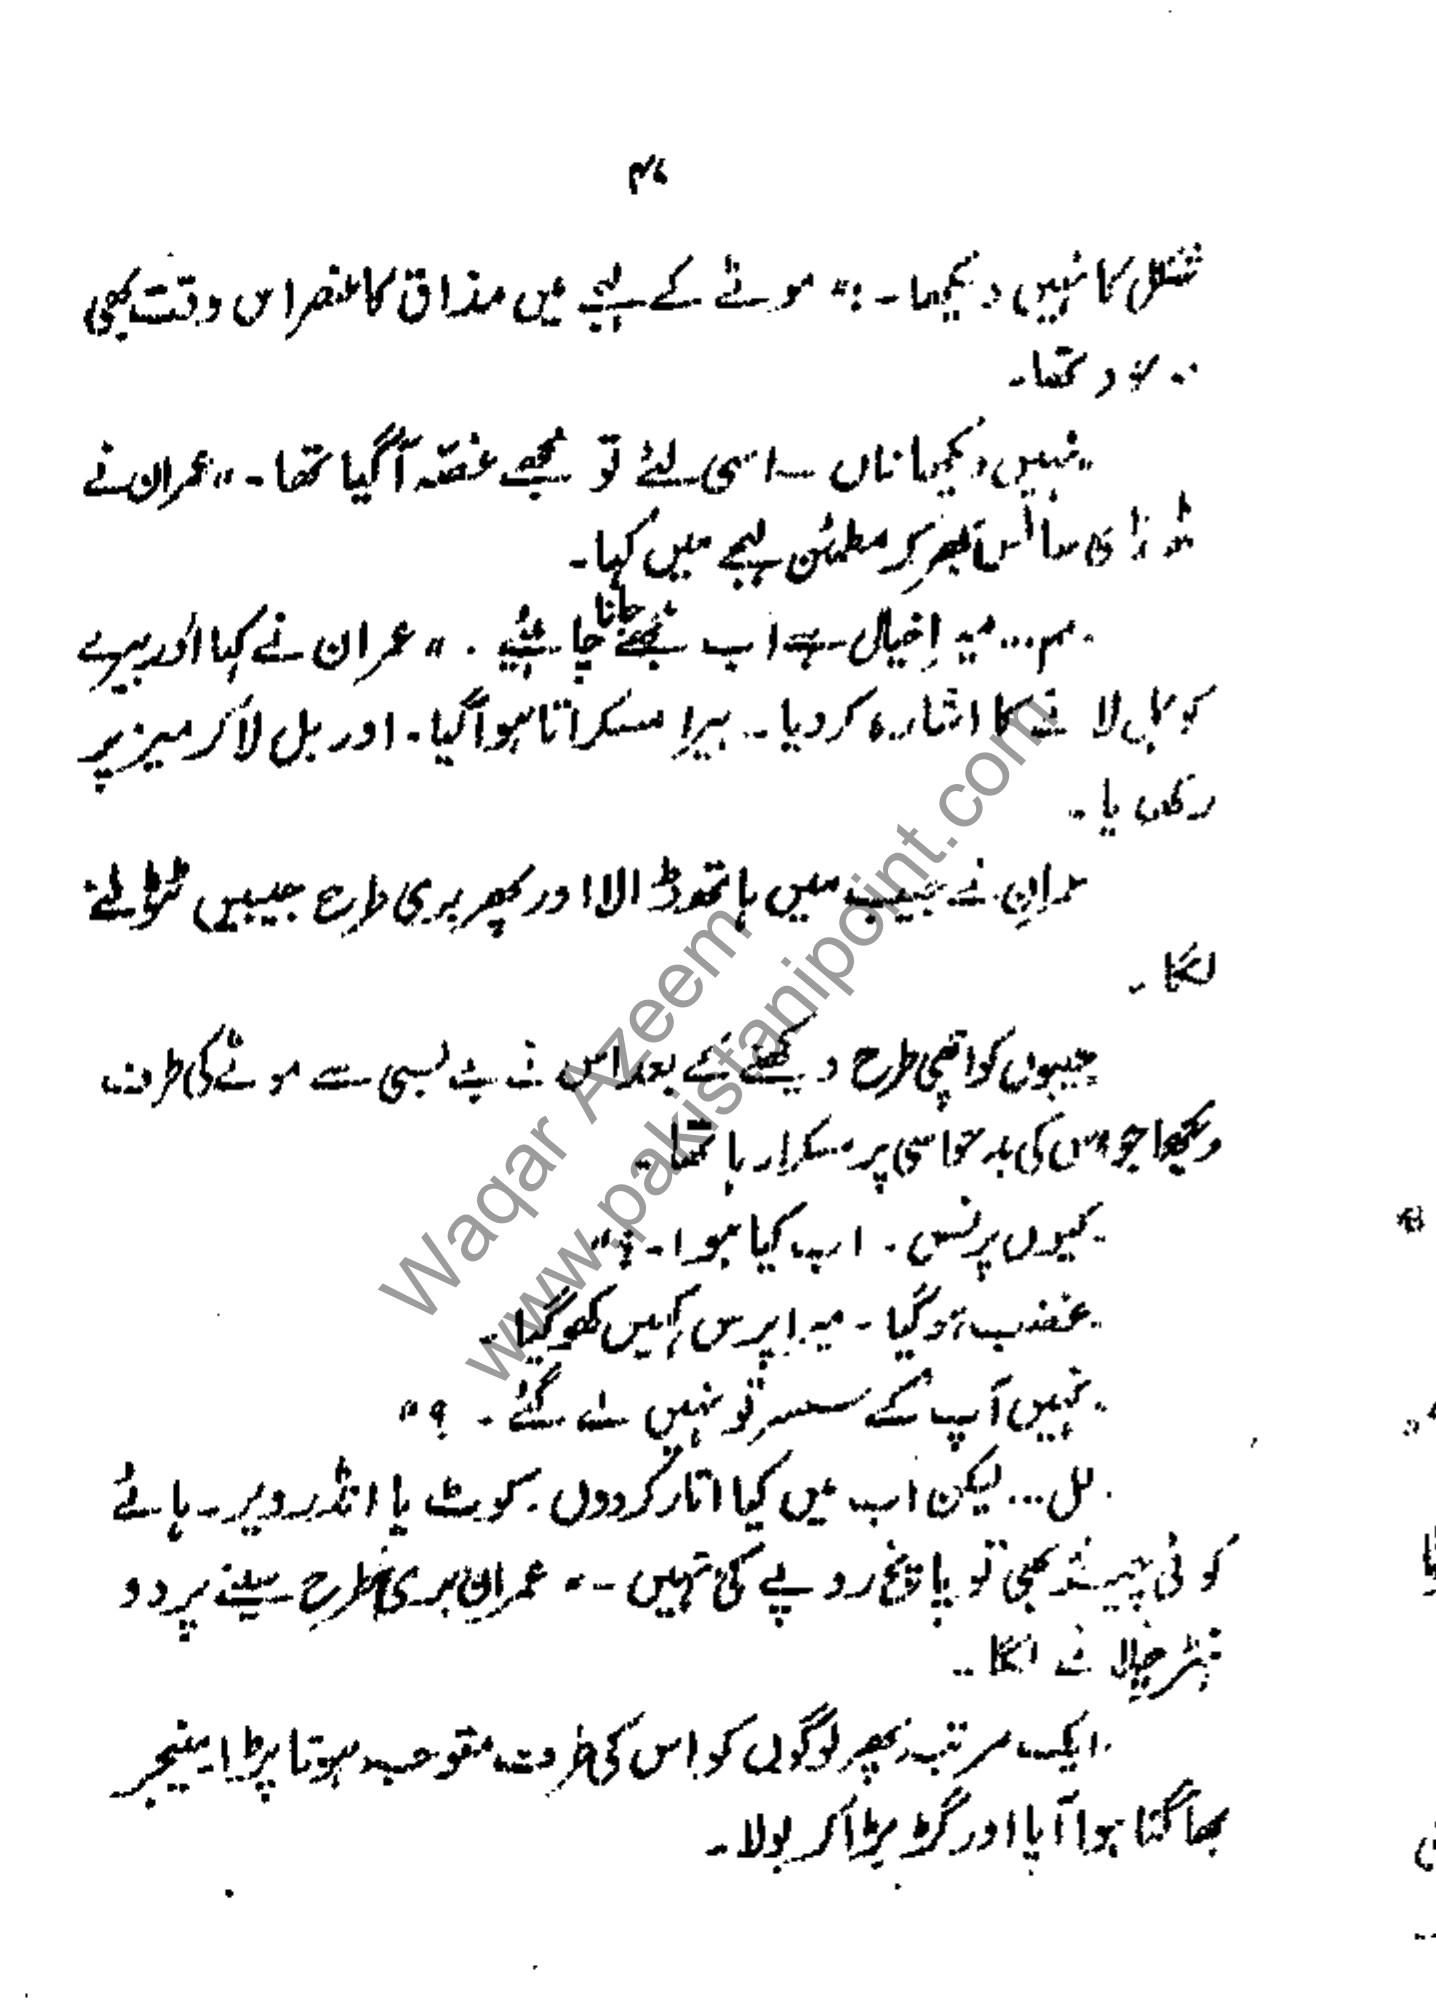 شکل کا نہیں دیکھا۔" موٹے کے لہجے میں مذاق کا عنصر اس وقت بھی
موجود تھا۔
"نہیں دیکھا ناں۔ اسی لئے تو مجھے غصّہ آگیا تھا۔" عمران نے
ٹھنڈی سانس بھر کر مطمئن لہجے میں کہا۔
"مم... میرا خیال ہے اب مجھے جانا چاہئیے۔" عمران نے کہا اور بیرے
کو بل لانے کا اشارہ کر دیا۔ بیرا مسکراتا ہوا گیا۔ اور بل لا کر میز پر
رکھ دیا۔
عمران نے جیب میں ہاتھ ڈالا اور پھر بری طرح جیبیں ٹٹولنے
لگا۔
جیبوں کو اچھی طرح دیکھنے کے بعد اس نے بے بسی سے موٹے کی طرف
دیکھا جو اس کی بدحواسی پر مسکرا رہا تھا۔
"کیوں پرنس۔ اب کیا ہوا۔؟"
"غضب ہو گیا۔ میرا پرس کہیں کھو گیا۔
"کہیں آپ کے سسر تو نہیں لے گئے۔؟"
"لل... لیکن اب میں کیا اتار کر دوں۔ کوٹ یا انڈر ویر۔ ہائے
کوئی چیز بھی تو پانچ روپے کی نہیں۔" عمران بری طرح سینے پر دو
ہتڑ چلانے لگا۔
ایک مرتبہ پھر لوگوں کو اس کی طرف متوجہ ہونا پڑا۔ مینیجر
بھاگتا ہوا آیا اور گڑبڑا کر بولا۔
Waqar Azeem
www.pakistanipoint.com